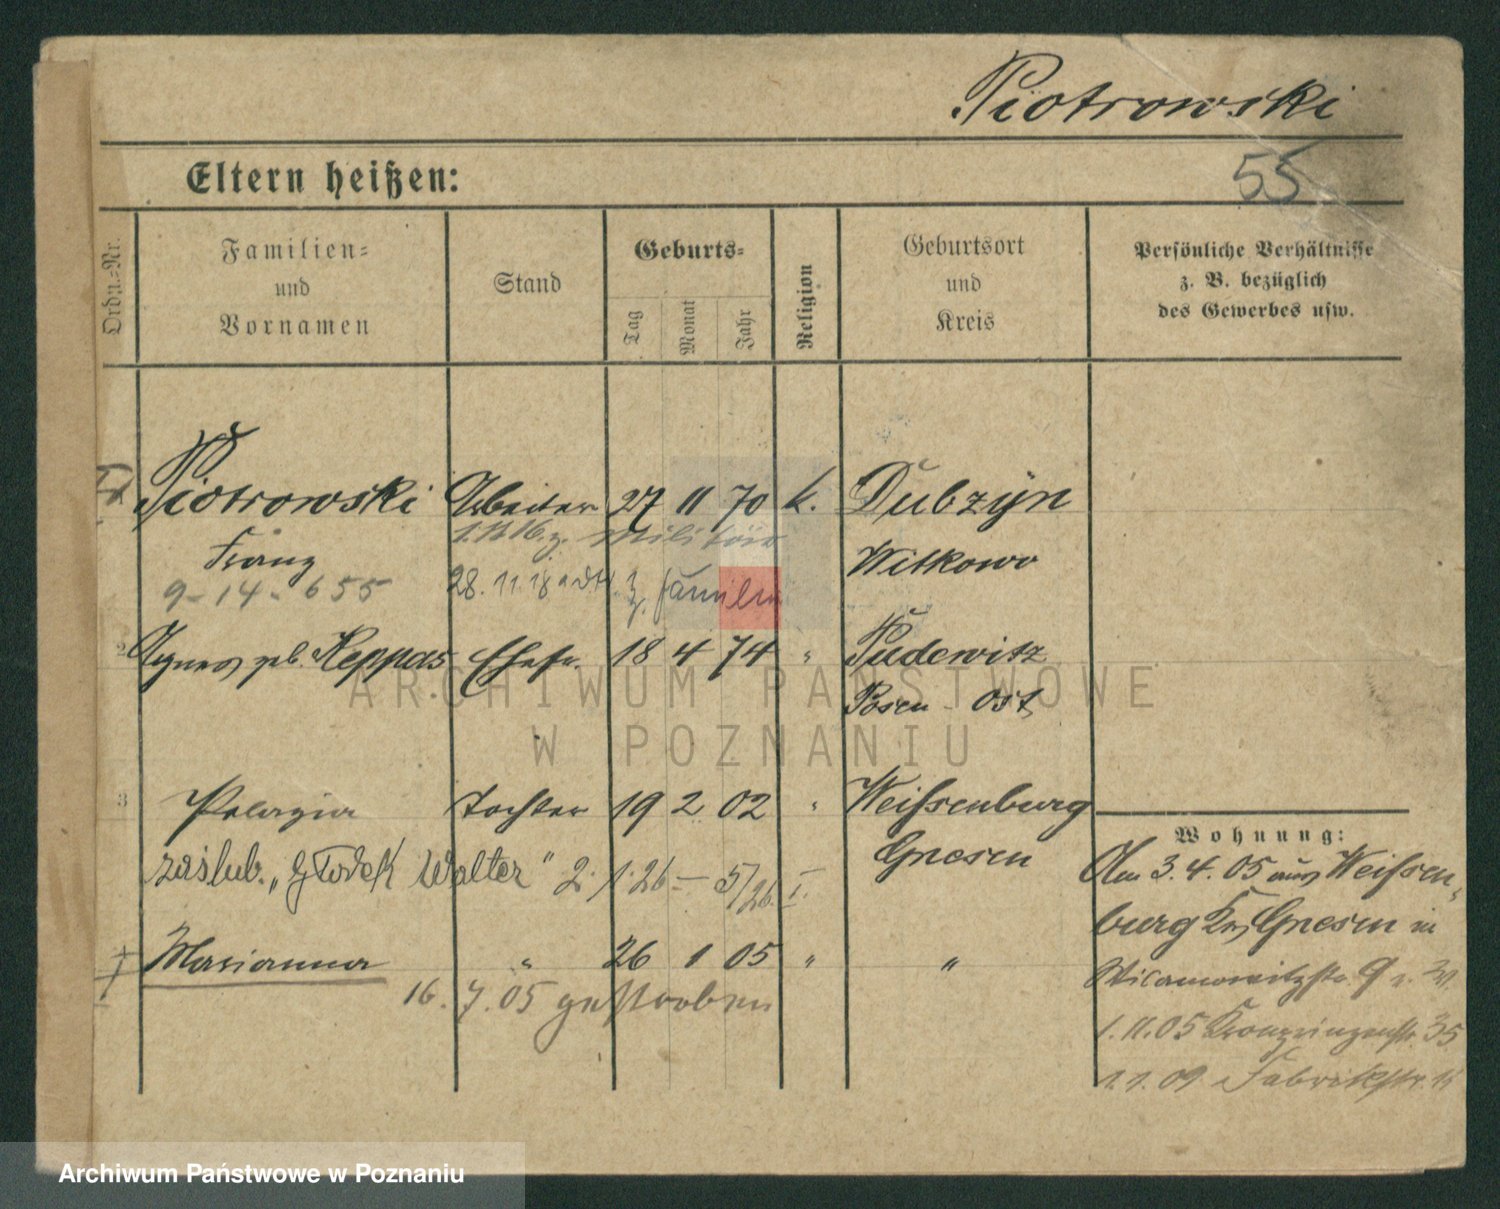 Piotrowski
Eltern heißen:
55
Ordn.=Nr.
Familien=
und
Vornamen
Stand
Geburts=
Tag
Monat
Jahr
Religion
Geburtsort
und
Kreis
Persönliche Verhältnisse
z. B. bezüglich
des Gewerbes usw.
Piotrowski Arbeiter 27 11 70 k. Dubzyn
z. Militär
Franz Witkowo
9-14-655 28.11.18 z. Familie
2 Agnes geb. Reppas Ehefr. 18 4 74 " Pudewitz
Posen-Ost
3 Pelagia Tochter 19 2 02 " Weißenburg
Gnesen
zaślub. „Głodek Walter" 2.1.26 – 5/26. I.
Marianna " 26 1 05 " "
16.7.05 gestorben
Wohnung:
Am 3.4.05 aus Weißen-
burg Krs Gnesen in
9
1.11.05 Kronprinzenstr. 35
1.1.09 Fabrikstr.
ARCHIWUM PAŃSTWOWE
W POZNANIU
Archiwum Państwowe w Poznaniu